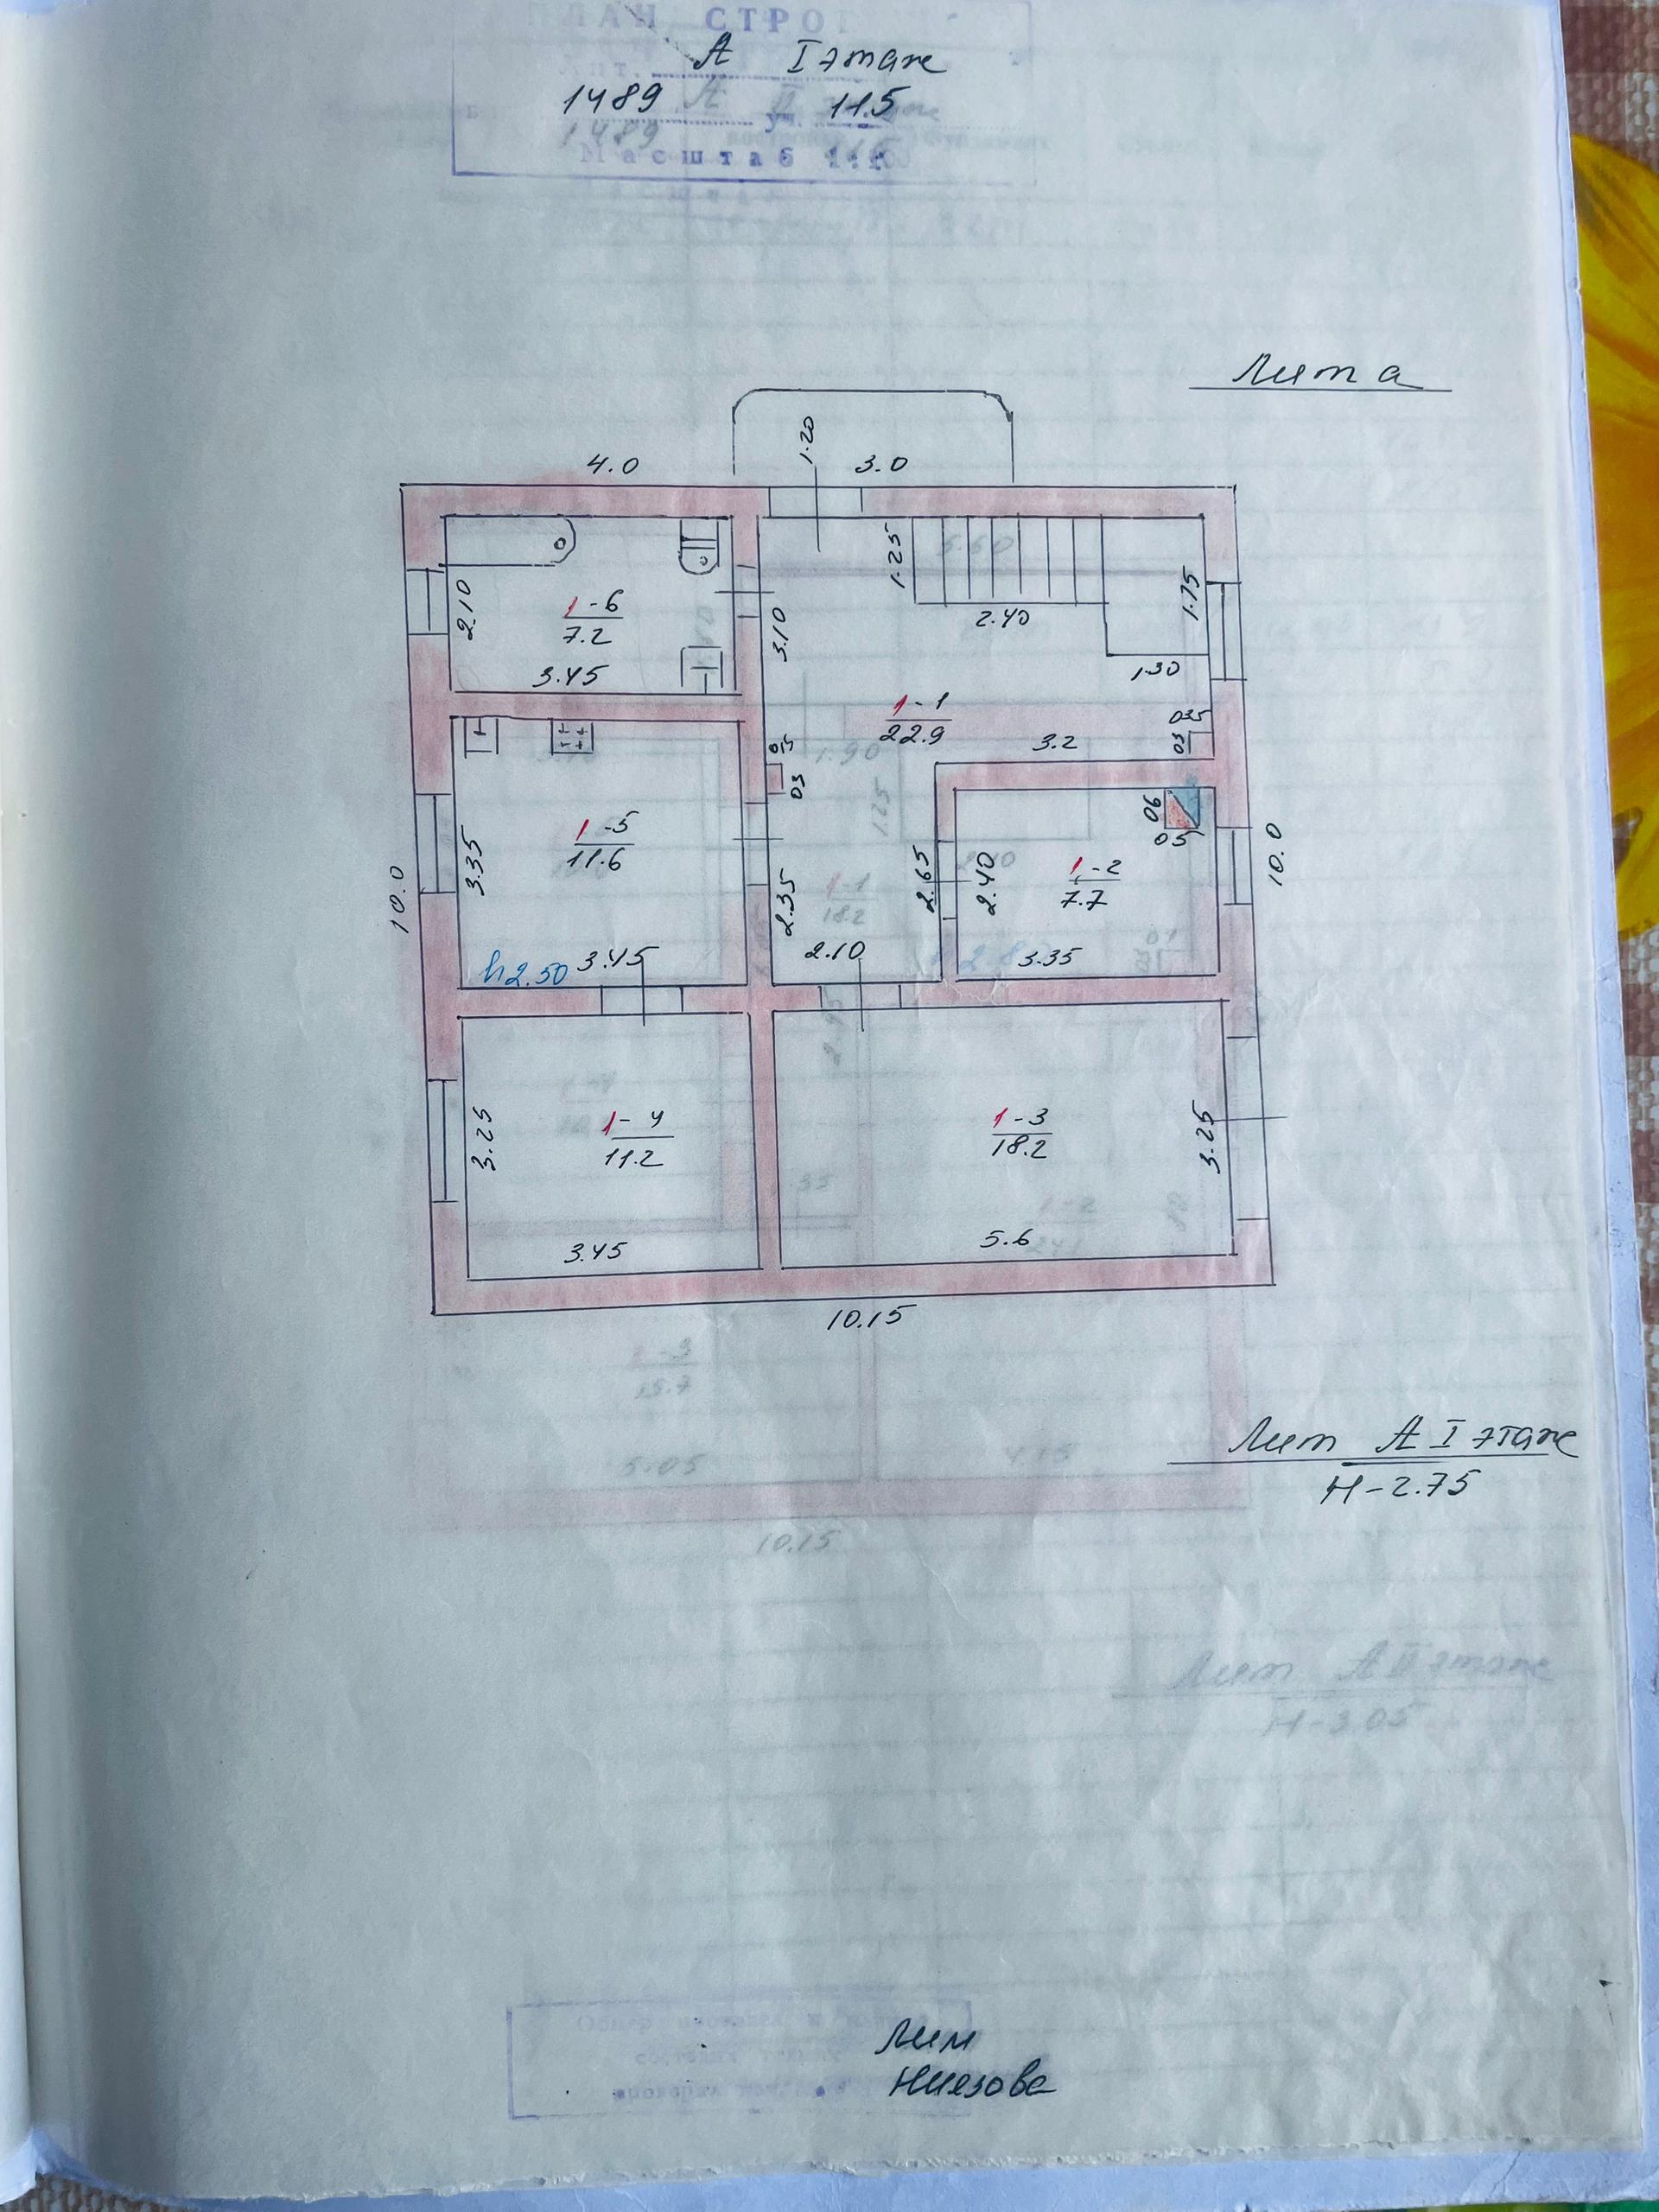 ПЛАН СТРО
А I этаж
1489 уч. 115
Масштаб 1:100
Лит а
4.0
1.20
3.0
2.10
1-6
7.2
3.45
3.10
1.25
2.40
1.75
1.30
1-1
22.9
3.2
035
03
03
1-5
11.6
3.35
h2.50
3.45
2.35
2.10
2.65
2.40
06
05
1-2
7.7
3.35
10.0
10.0
1-4
11.2
3.25
3.45
1-3
18.2
3.25
5.6
10.15
1-3
15.7
5.05
4.15
10.15
Лит А I этаж
Н-2.75
Лит А II этаж
Н-3.05
Лим
Ниязова